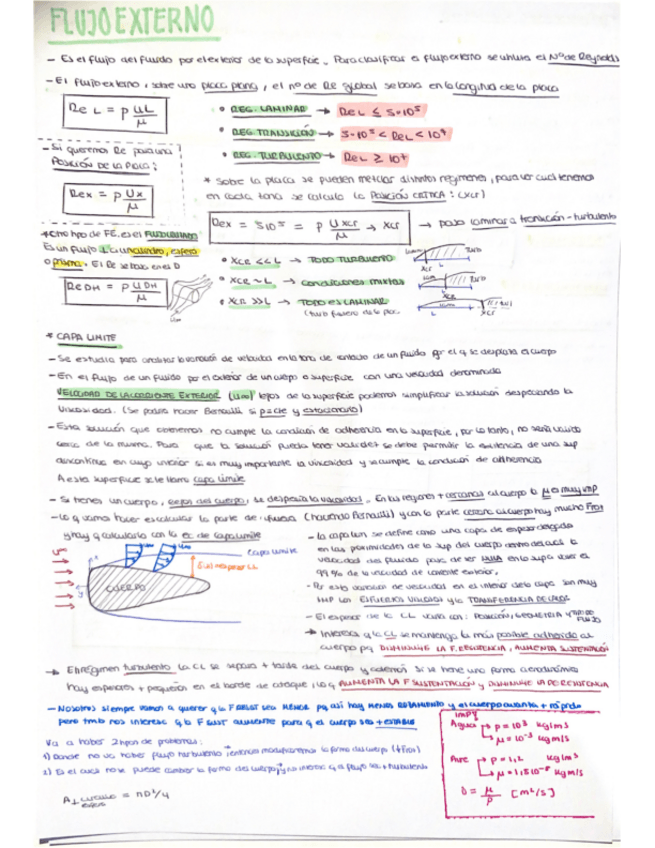 FLUJO EXTERNO
- Es el flujo del fluido por el exterior de la superficie. Para clasificar a flujo externo se utiliza el Nº de Reynolds
- El flujo externo, sobre una placa plana, el nº de Re global se basa en la longitud de la placa
Re L = ρ UL / μ
• REG. LAMINAR → Re L ≤ 5·10⁵
• REG TRANSICIÓN → 5·10⁵ < Re L < 10⁷
• REG. TURBULENTO → Re L ≥ 10⁷
- Si queremos Re para una
POSICIÓN DE LA PLACA:
Re x = ρ Ux / μ
* Sobre la placa se pueden mezclar distintos regímenes, para ver cual tenemos
en cada zona se calcula la POSICIÓN CRÍTICA: (xcr)
Re x = 5·10⁵ = ρ U xcr / μ → xcr → pasa laminar a transición - turbulento
* Otro tipo de FE, es el
Es un flujo ⊥ a un cilindro, esfera
o prisma. El Re se basa en el D
Re DH = ρ U DH / μ
• XCR << L → TODO TURBULENTO
• XCR ~ L → condiciones mixtas
• XCR >> L → TODO ES LAMINAR
(turb fuera de la placa
* CAPA LIMITE
- Se estudia para analizar la variación de velocidad en la zona de contacto de un fluido por el q se desplaza el cuerpo
- En el flujo de un fluido por el exterior de un cuerpo o superficie con una velocidad denominada
VELOCIDAD DE LA CORRIENTE EXTERIOR (U∞) lejos de la superficie podemos simplificar la solución despreciando la
viscosidad. (Se podrá hacer Bernoulli si ρ=cte y estacionario)
- Esta solución que obtenemos no cumple la condición de adherencia en la superficie, por lo tanto, no sería válida
cerca de la misma. Para que la solución pueda tener validez se debe permitir la existencia de una sup
discontinua en cuyo interior si es muy importante la viscosidad y se cumpla la condición de adherencia
A esta superficie se le llama capa límite
- Si tienes un cuerpo, lejos del cuerpo, se desprecia la viscosidad. En las regiones + cercanas al cuerpo la μ es muy imp
- Lo q vamos hacer es calcular la parte de afuera (haciendo Bernoulli) y en la parte cercana al cuerpo hay mucha Froz
y hay q calcularla con la ec de capa límite
Capa limite
CUERPO
- La capa lim se define como una capa de espesor delgada
en las proximidades de la sup del cuerpo dentro del cual la
velocidad del fluido pasa de ser NULA en la sup a ser el
99% de la velocidad de corriente exterior.
- Por esto variación de velocidad en el interior de la capa son muy
imp los ESFUERZOS VISCOSOS y la TRANSFERENCIA DE CALOR
- El espesor de la CL varía con: POSICIÓN, GEOMETRÍA Y TIPO DE FLUJO
→ Interesa q la CL se mantenga lo más posible adherida al
cuerpo pq DISMINUYE LA F. RESISTENCIA, AUMENTA SUSTENTACIÓN
→ En régimen turbulento la CL se separa + tarde del cuerpo y además si se tiene una forma aerodinámica
hay espesores + pequeños en el borde de ataque, lo q AUMENTA LA F SUSTENTACIÓN y DISMINUYE LA DE RESISTENCIA
- Nosotros siempre vamos a querer q la F sea MENOR pq así hay MENOS ROZAMIENTO y el cuerpo avanza + rápido
pero tmb nos interesa q la F SUST AUMENTE para q el cuerpo sea + estable
Va a haber 2 tipos de problemas:
1) Donde no va haber flujo turbulento → entonces modificaremos la forma del cuerpo (+ Froz)
2) Es el caso no se puede cambiar la forma del cuerpo y nos interesa q el flujo sea + turbulento
A⊥ circulo esfera = πD²/4
IMP!
Agua → ρ = 10³ kg/m³
→ μ = 10⁻³ kg/m/s
Aire → ρ = 1,2 kg/m³
→ μ = 1,8·10⁻⁵ kg/m/s
υ = μ / ρ [m²/s]